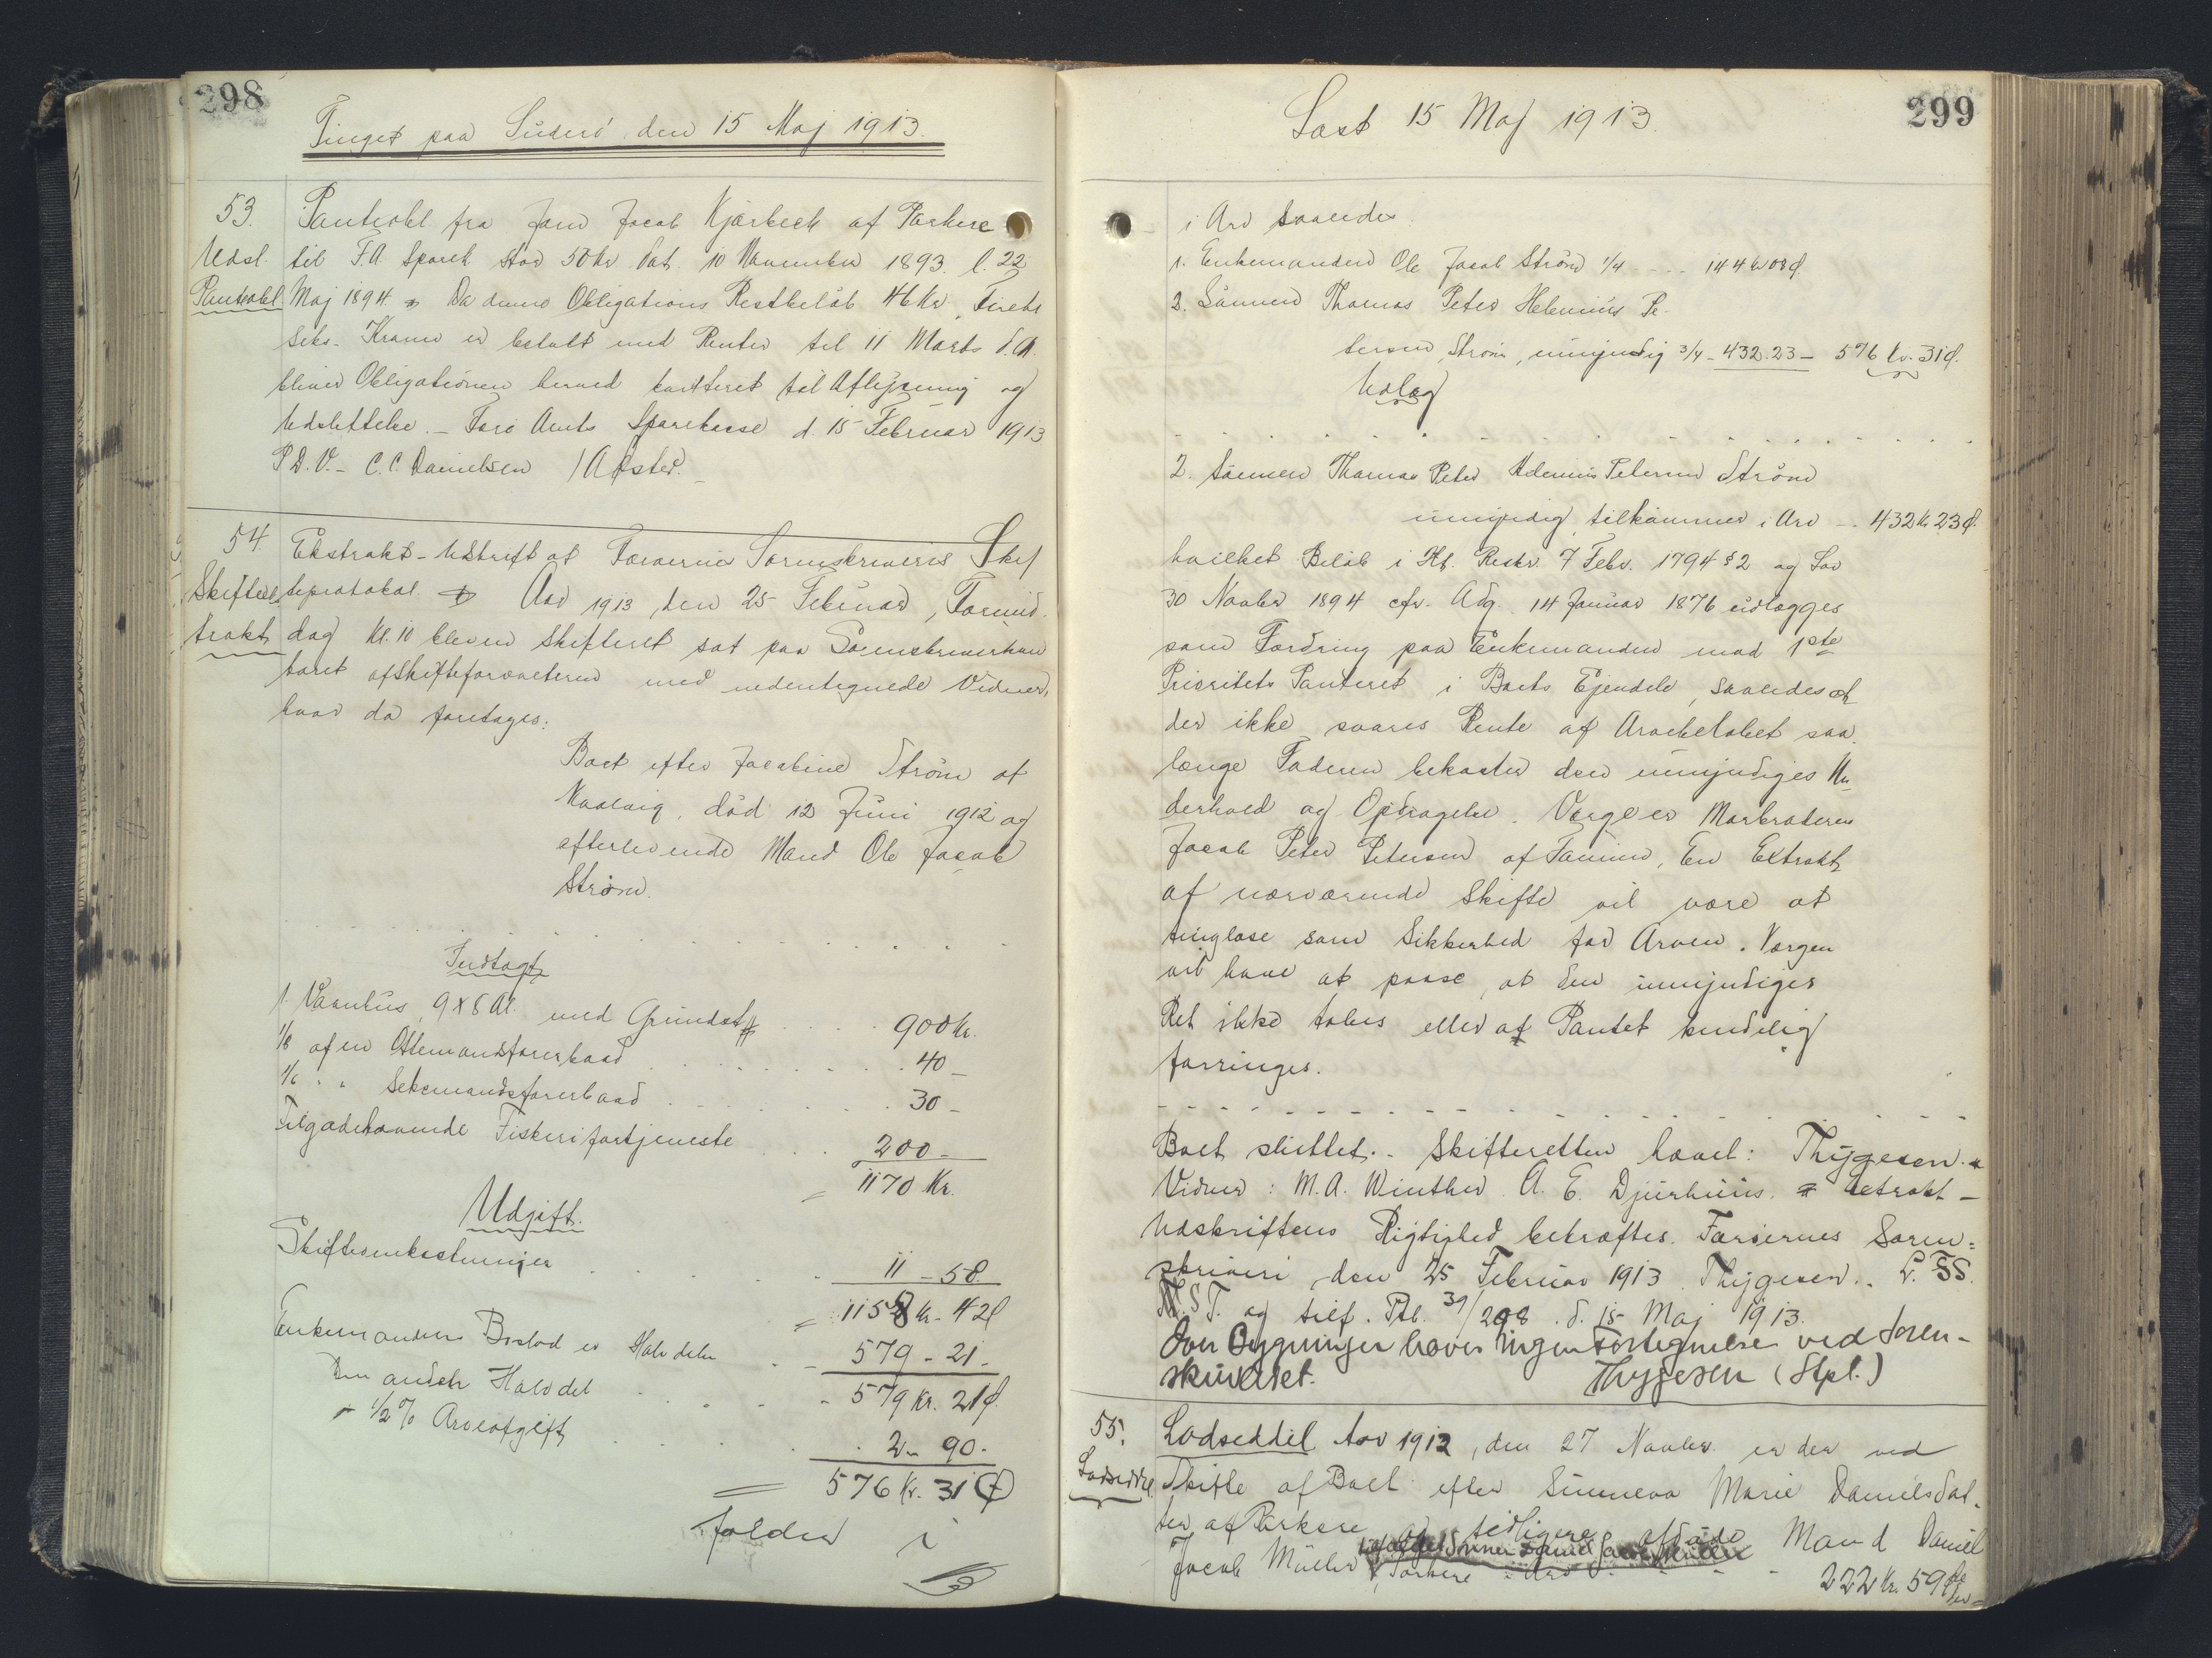 298
Tinget paa Suderö den 15 Maj 1913.
53. Pantobl. fra Joen Jacob Kjærbech af Porkere
Udsl. til F.A. Sparek stor 50 Kr. Dat. 10 November 1893. l. 22
Pantobl. Maj 1894. Da denne Obligations Restbeløb 46 Kr, Fireti
seks - Kroner er betalt med Renter til 11 Marts d.A.
bliver Obligationen herved kvitteret til Aflysning og
Udslettelse. - Færø Amts Sparekasse d. 15 Februar 1913
P.D.V. - C.C. Danielsen /
54. Ekstrakt-Udskrift af Færøernes Sorenskriveris Skif
Skifteeks teprotokol. Aar 1913, den 25 Februar, Formid
trakt dag Kl. 10 blev en Skifteret sat paa Sorenskriverkon
toret af skifteforvalteren med undertegnede Vidner,
hvor da foretages:
Boet efter Jacobine Strøm af
Vaalvig, død 12 Juni 1912 og
efterlevende Mand Ole Jacob
Strøm.
Indtægt
1. Vaanhus, 9 x 8 Al. med Grundst 900 Kr.
1/8 af en Ottemandsfarerbaad 40 -
1/6 " " Seksmandsfarerbaad 30 -
Tilgodehavende Fiskerifortjeneste 200 -
1170 Kr.
Udgift.
Skifteomkostninger 11 - 58
= 1158 Kr. 42 Ø
Enkemandens Boslod er Halvdelen 579 - 21 -
Den anden Halvdel 579 Kr. 21 Ø.
÷ 1/2 % Arveafgift 2 - 90 -
= 576 Kr. 31 Ø
falder i
299
Læst 15 Maj 1913.
i Arv saaledes
1. Enkemanden Ole Jacob Strøm 1/4 - - - 144 Kr 08 Ø
2. Sønnen Thomas Peter Helenius Pe-
tersen Strøm, umyndig 3/4 - 432.23 - 576 Kr. 31 Ø.
Udlæg
2. Sønnen Thomas Peter Helenius Petersen Strøm
umyndig, tilkommer i Arv - 432 Kr 23 Ø.
hvilket Beløb i Hf. Reskr. 7 Febr. 1794 § 2 og Lov
30 Novbr 1894 cfr. Adg. 14 Januar 1876 udlægges
som Fordring paa Enkemanden mod 1ste
Prioritets Panteret i Boets Ejendele, saaledes at
der ikke svares Rente af Arvebeløbet saa
længe Faderen bekoster den umyndiges Un
derhold og Opdragelse. Værge er Morbroderen
Jacob Peter Petersen af Famien, En Extrakt
af nærværende Skifte vil være at
tinglæse som Sikkerhed for Arven. Værgen
vil have at paase, at den umyndiges
Ret ikke tabes eller at Pantet kendelig
forringes.
Boet sluttet. - Skifteretten hævet: Thygesen. -
Vidner: M.A. Winther. A.E. Djurhuus. Extrakt -
Udskriftens Rigtighed bekræftes. Færøernes Soren=
skriveri, den 25 Februar 1913. Thygesen. L. SS.
og tilf. Ptb. 39/298. d. 15 Maj 1913.
Over Bygninger haves ingen Fortegnelse ved Soren-
skriveriet. Thygesen (Stpl.)
55. Lodseddel. Aar 1912, den 27 Novbr. er der ved
Lodseddel Skifte af Boet efter Sunneva Marie Danielsdat-
ter af Porkere og tidligere afdøde Mand Daniel
Jacob Müller, Porkere i Arv - - - 222 Kr. 59 Ø